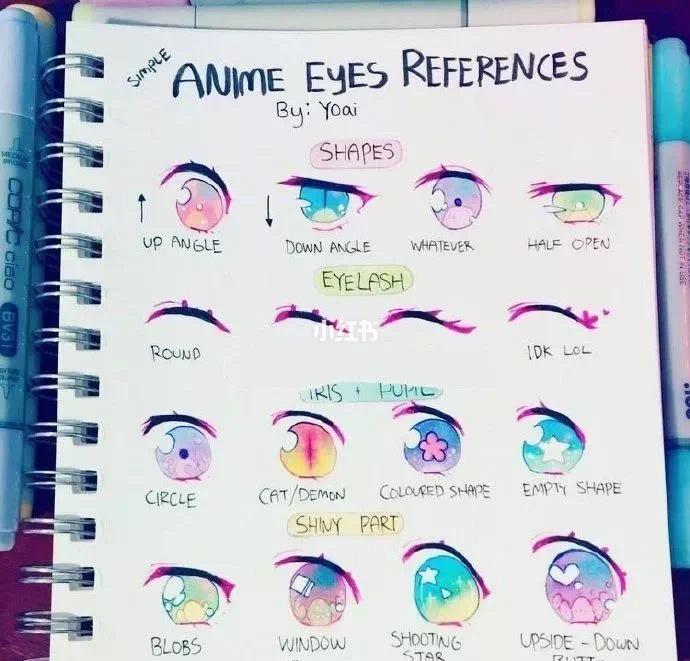 SIMPLE
ANIME EYES REFERENCES
By: YOai
SHAPES
UP ANGLE
DOWN ANGLE
WHATEVER
HALF OPEN
EYELASH
小红书
ROUND
IDK LOL
IRIS + PUPIL
CIRCLE
CAT/DEMON
COLOURED SHAPE
EMPTY SHAPE
SHINY PART
BLOBS
WINDOW
SHOOTING
STAR
UPSIDE-DOWN
BUTT
COPIC
ciao
BV31
MEDIUM
BROAD
REPLACE CAP WHEN NOT IN USE